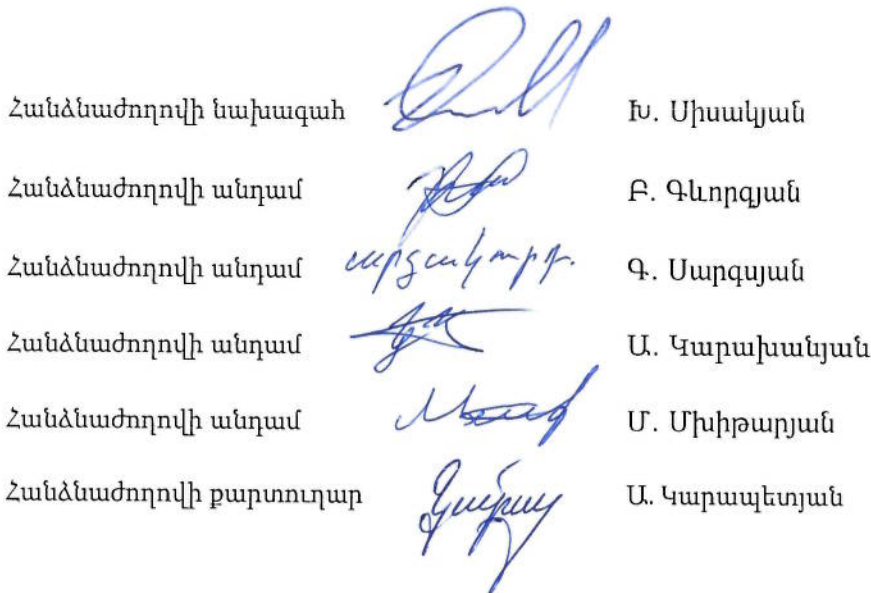 Հանձնաժողովի նախագահ Խ. Սիսակյան
Հանձնաժողովի անդամ Բ. Գևորգյան
Հանձնաժողովի անդամ արձակուրդ. Գ. Սարգսյան
Հանձնաժողովի անդամ Ա. Կարախանյան
Հանձնաժողովի անդամ Մ. Մխիթարյան
Հանձնաժողովի քարտուղար Ա. Կարապետյան